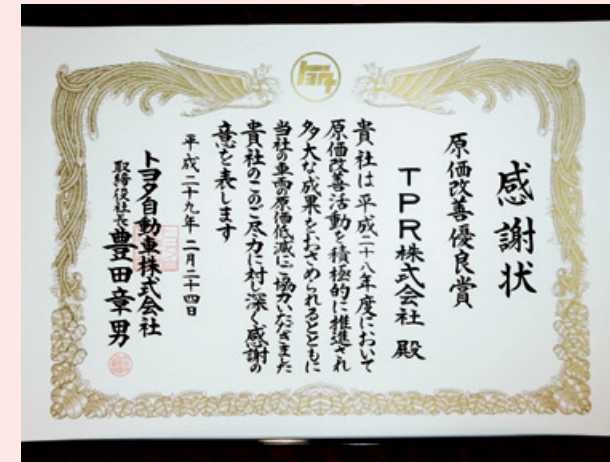 トヨタ
感謝状
原価改善優良賞
TPR株式会社 殿
貴社は平成二十八年度において
原価改善活動を積極的に推進され
多大な成果をおさめられるとともに
当社の車両の原価低減にご協力いただきました
貴社のこのご尽力に対し深く感謝の
意を表します
平成二十九年 二月二十四日
トヨタ自動車株式会社
取締役社長 豊田章男